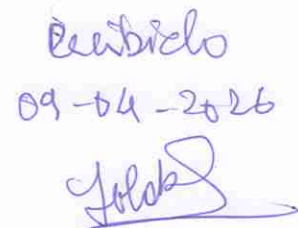 Recibido
09-04-2026